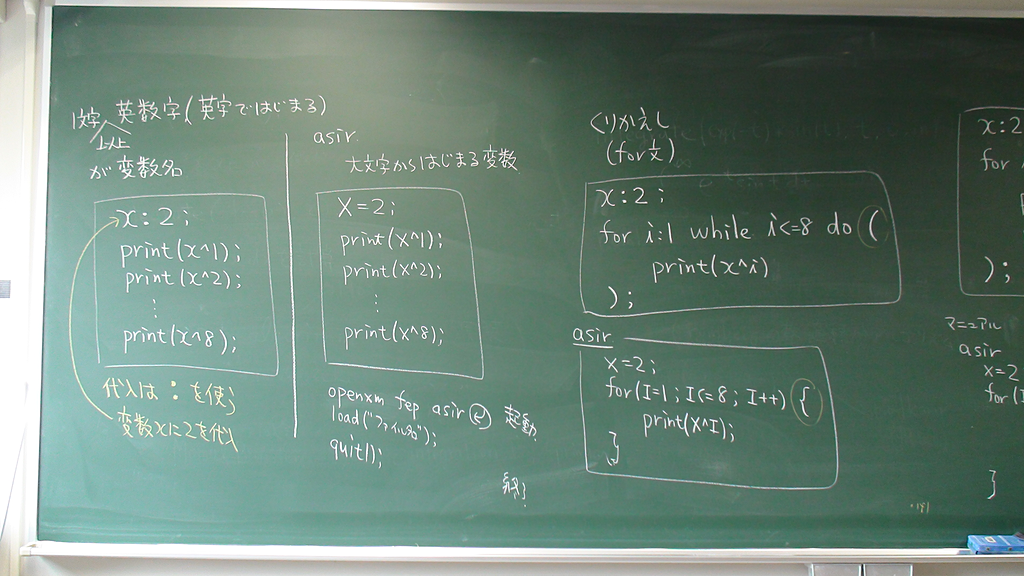 1文字以上 英数字(英字ではじまる)
が変数名
x:2;
print(x^1);
print(x^2);
⋮
print(x^8);
代入は : を使う
変数xに2を代入
asir
大文字からはじまる変数
X=2;
print(X^1);
print(X^2);
⋮
print(X^8);
openxm fep asir 起動
load("ファイル名");
quit();
くりかえし
(for文)
x:2;
for i:1 while i<=8 do (
print(x^i)
);
asir
X=2;
for(I=1;I<=8;I++) {
print(X^I);
}
x:2
for
);
マニュアル
asir
x=2
for(I
}